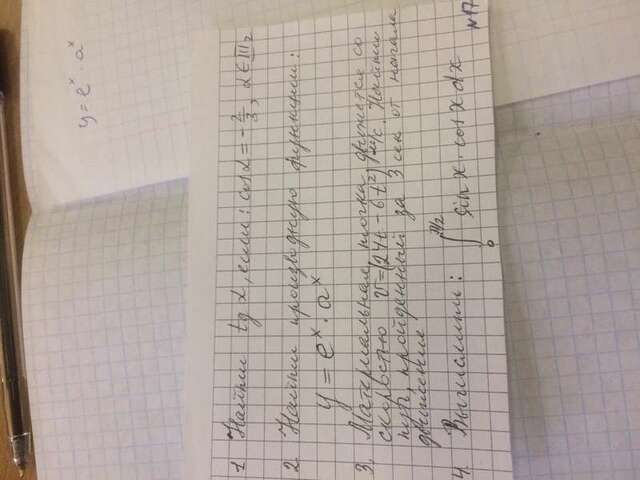 y = e^x · a^x
1. Найти tg α, если: cos α = -2/3, α ∈ III ч
2. Найти производную функции:
y = e^x · a^x
3. Материальная точка движется со
скоростью v = (24t - 6t²) м/с. Найти
путь, пройденный за 3 сек от начала
движения
4. Вычислить: ∫₀^{π/2} sin x · cos x dx
№17